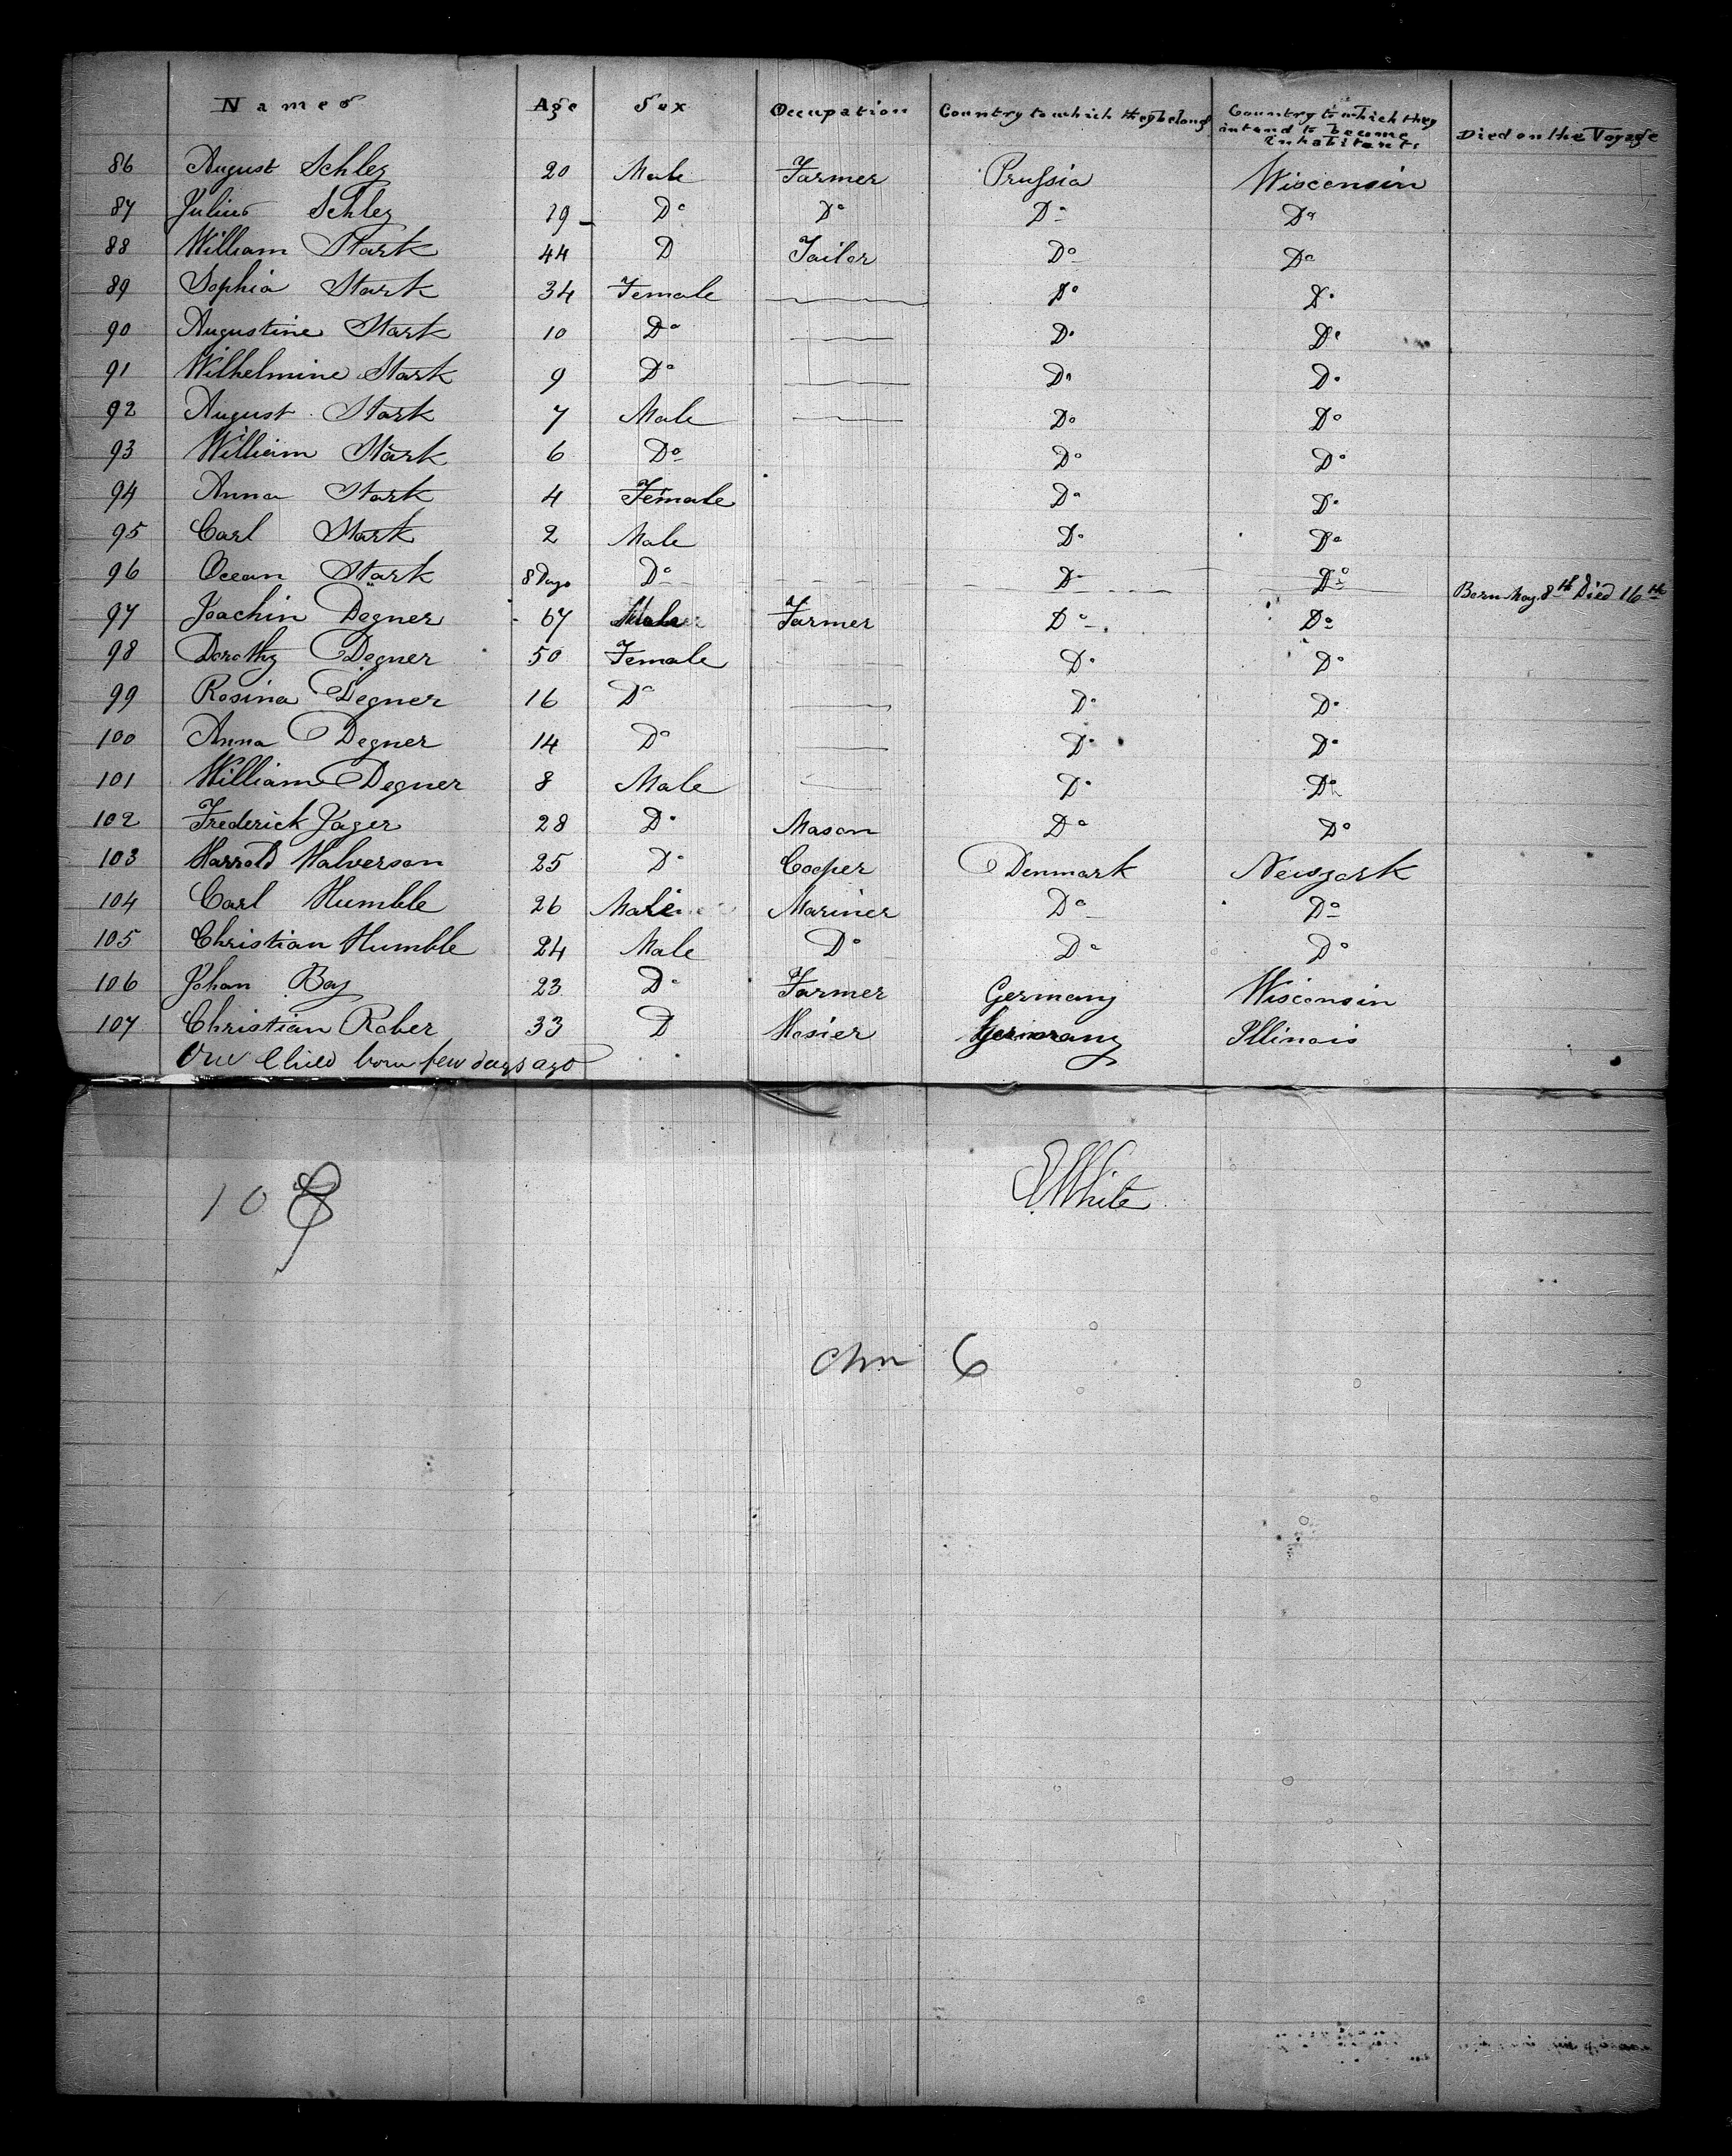 Names Age Sex Occupation Country to which they belong Country to which they intend to become Inhabitants Died on the Voyage
86 August Schley 20 Male Farmer Prussia Wisconsin
87 Julius Schley 19 Do Do Do Do
88 William Stark 44 D Tailor Do Do
89 Sophia Stark 34 Female Do Do
90 Augustine Stark 10 Do Do Do
91 Wilhelmine Stark 9 Do Do Do
92 August Stark 7 Male Do Do
93 William Stark 6 Do Do Do
94 Anna Stark 4 Female Do Do
95 Carl Stark 2 Male Do Do
96 Ocean Stark 8 Days Do Do Do Born May 8th Died 16th
97 Joachin Degner 67 Male Farmer Do Do
98 Dorothy Degner 50 Female Do Do
99 Rosina Degner 16 Do Do Do
100 Anna Degner 14 Do Do Do
101 William Degner 8 Male Do Do
102 Frederick Jager 28 Do Mason Do Do
103 Harrold Halverson 25 Do Cooper Denmark Newyork
104 Carl Humble 26 Male Mariner Do Do
105 Christian Humble 24 Male Do Do Do
106 Johan Bay 23 Do Farmer Germany Wisconsin
107 Christian Rober 33 D Hosier Germany Illinois
One Child born few days ago
White
10
6